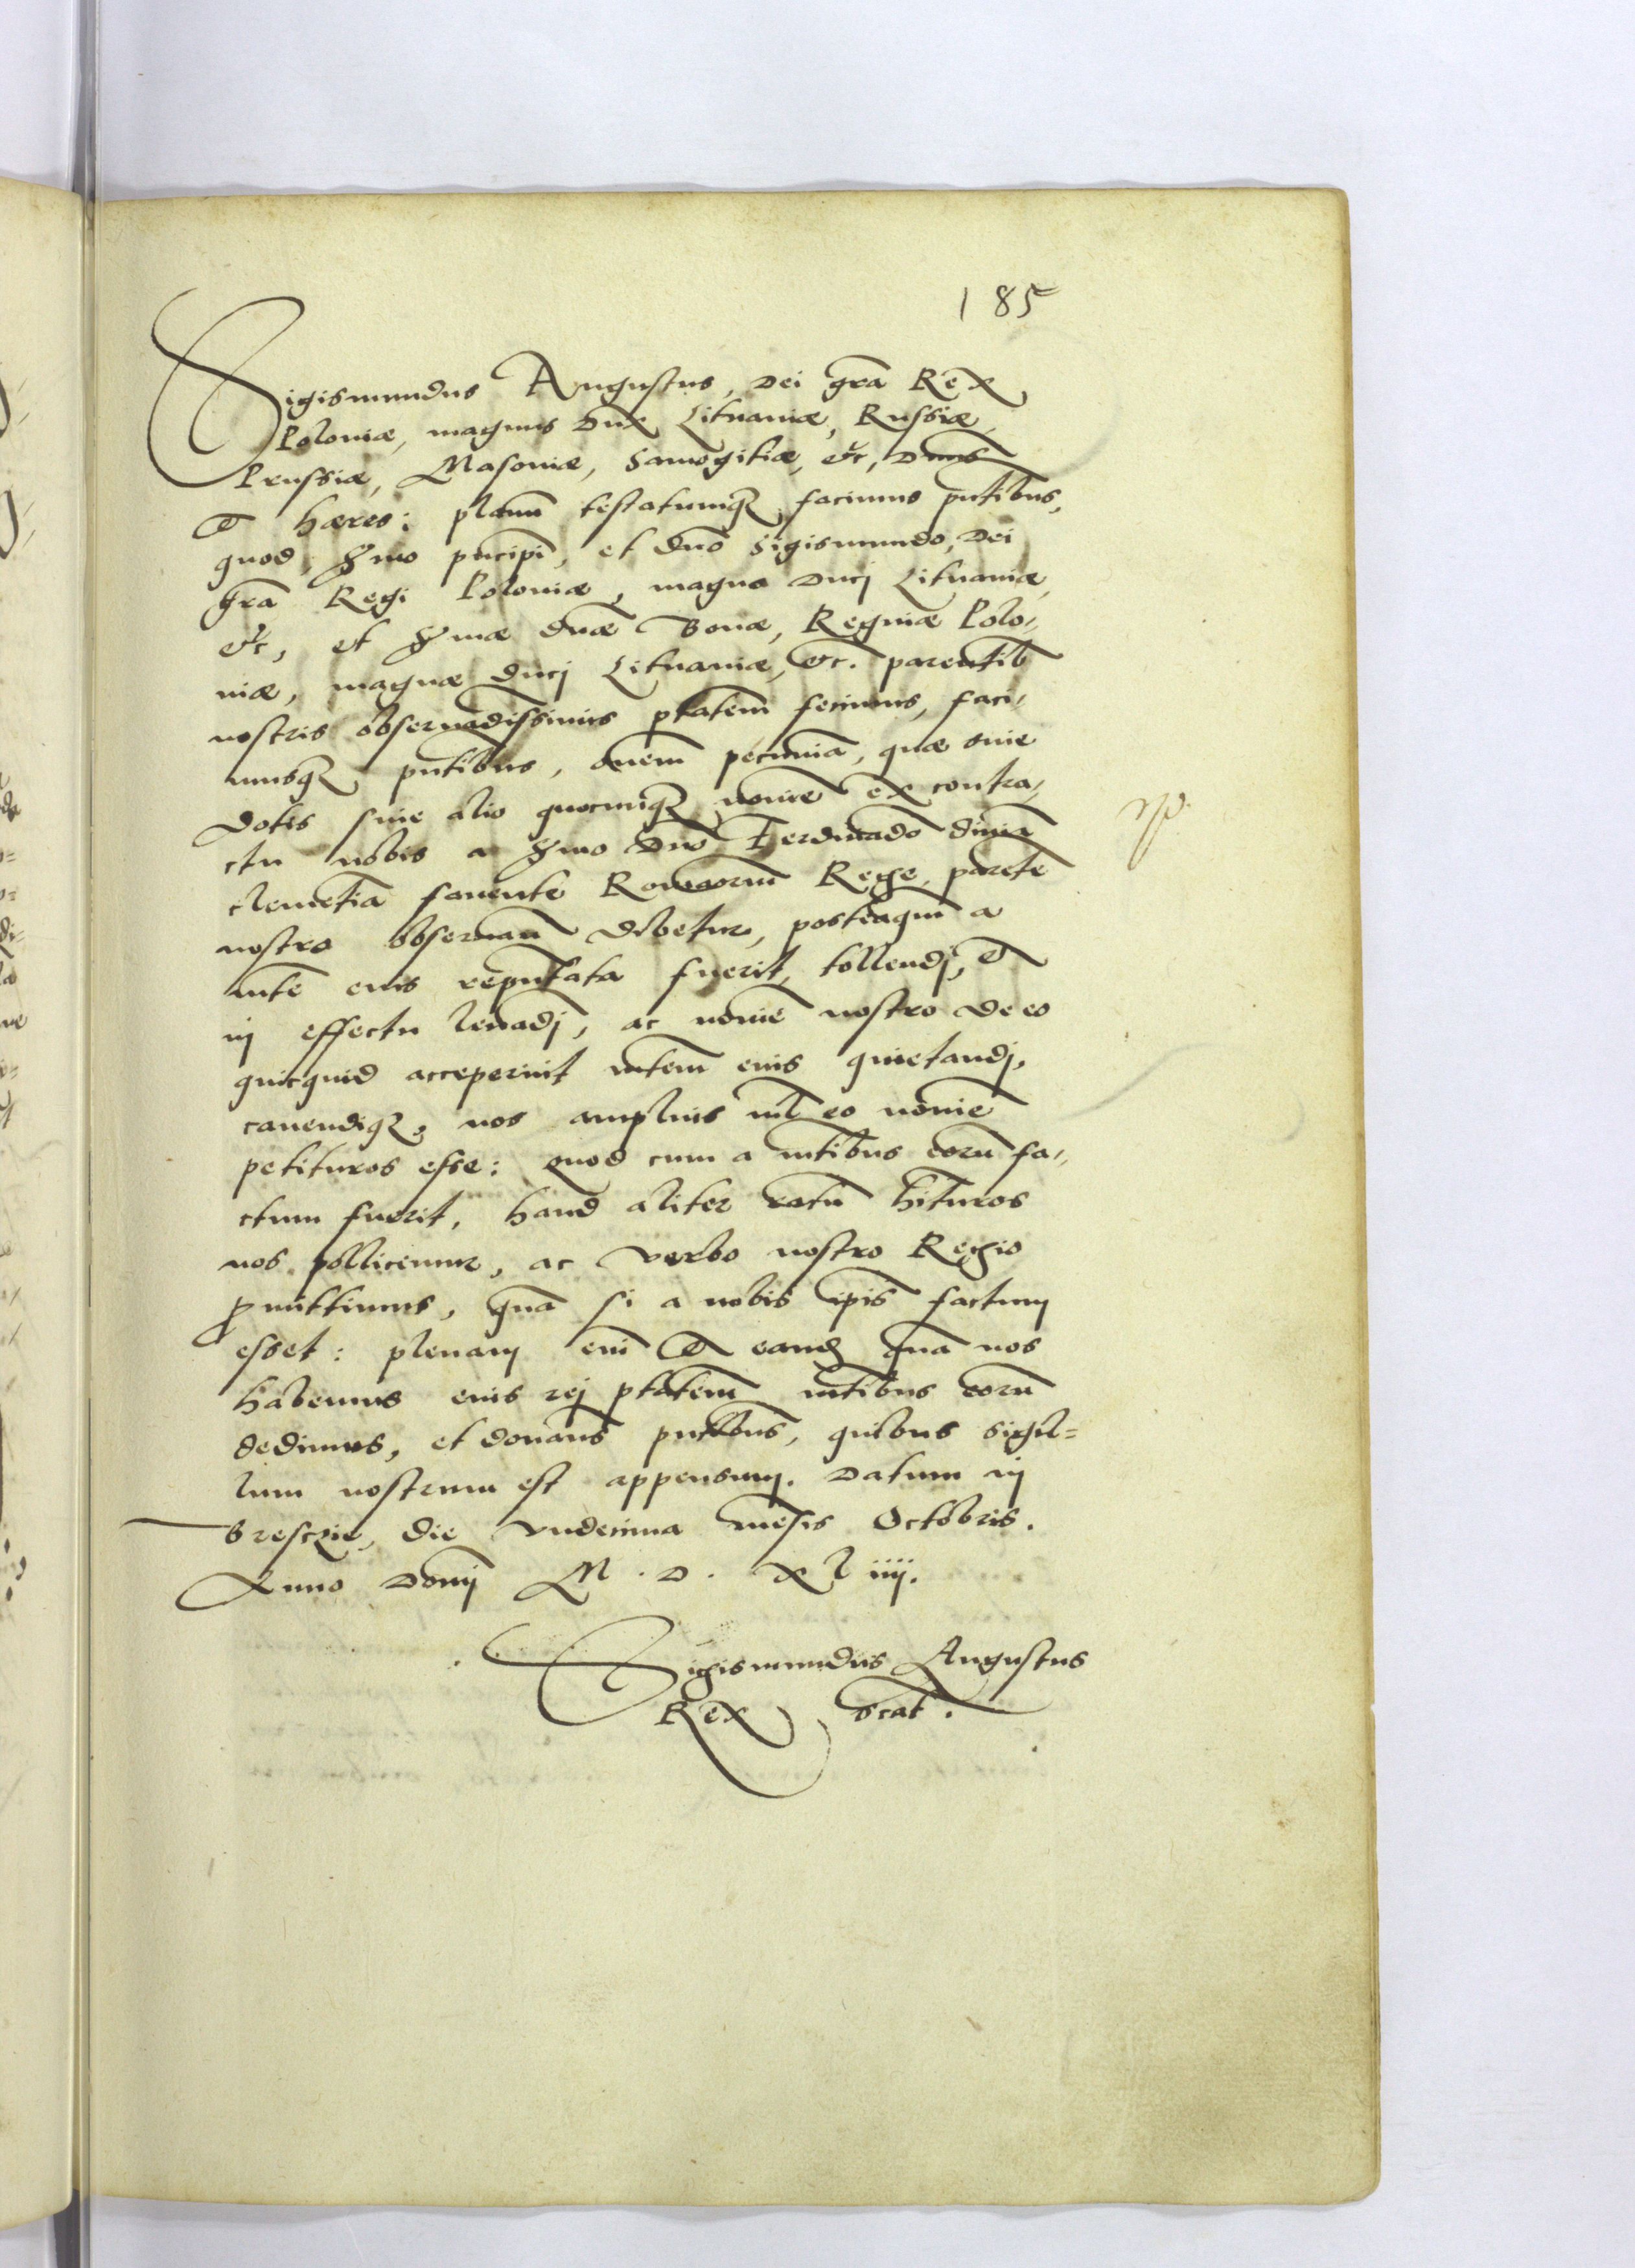 185
Sigismundus Augustus, Dei grã Rex
Poloniæ, magnus Dux Lituaniæ, Russiæ,
Prussiæ, Masoviæ, Samogitiæ, etc, Dnus
et hæres: planũ testatumq3 facimus pñtibus,
quod, Sermo pñcipi, et dnõ Sigismundo, Dei
grã Regi Poloniæ, magno Ducj Lituaniæ,
etc, et Sermæ dnæ Bonæ, Reginæ Polo,
niæ, magnæ Ducj Lituaniæ, etc. parentib
nostris observãdissimis ptatem fecimus, faci,
musq3 pñtibus, omnem pecuniã, quæ sive
dotis sive alio quocumq3 nomine ex contra,
ctu nobis a Sermo Dnõ Ferdinãdo divinã
clemẽtia favente Romãorum Rege, parẽte
nostro observan debetur, posteaqm a
nte eius repñtata fuerit, tollendj, et
in effectu levãdj, ac nomine nostro de eo
quicquid acceperint ntem eius quietandj,
cavendiq3, nos amplius nil eo nomine
petituros esse: quod cum a ntibus eorũ fa,
ctum fuerit, haud aliter ratũ hituros
nos pollicemur, ac verbo nostro Regio
promittimus, quã si a nobis ipis factum
esset: plenam eni et eand quã nos
habemus eius rej ptatem ntibus eorũ
dedimus, et donamus pñtibus, quibus sigil=
lum nostrum est appensum. Datum in
Bresczie, die undecima mẽsis Octobris.
Anno Domj M. D. Xl iiij.
Sigismundus Augustus
Rex scat.